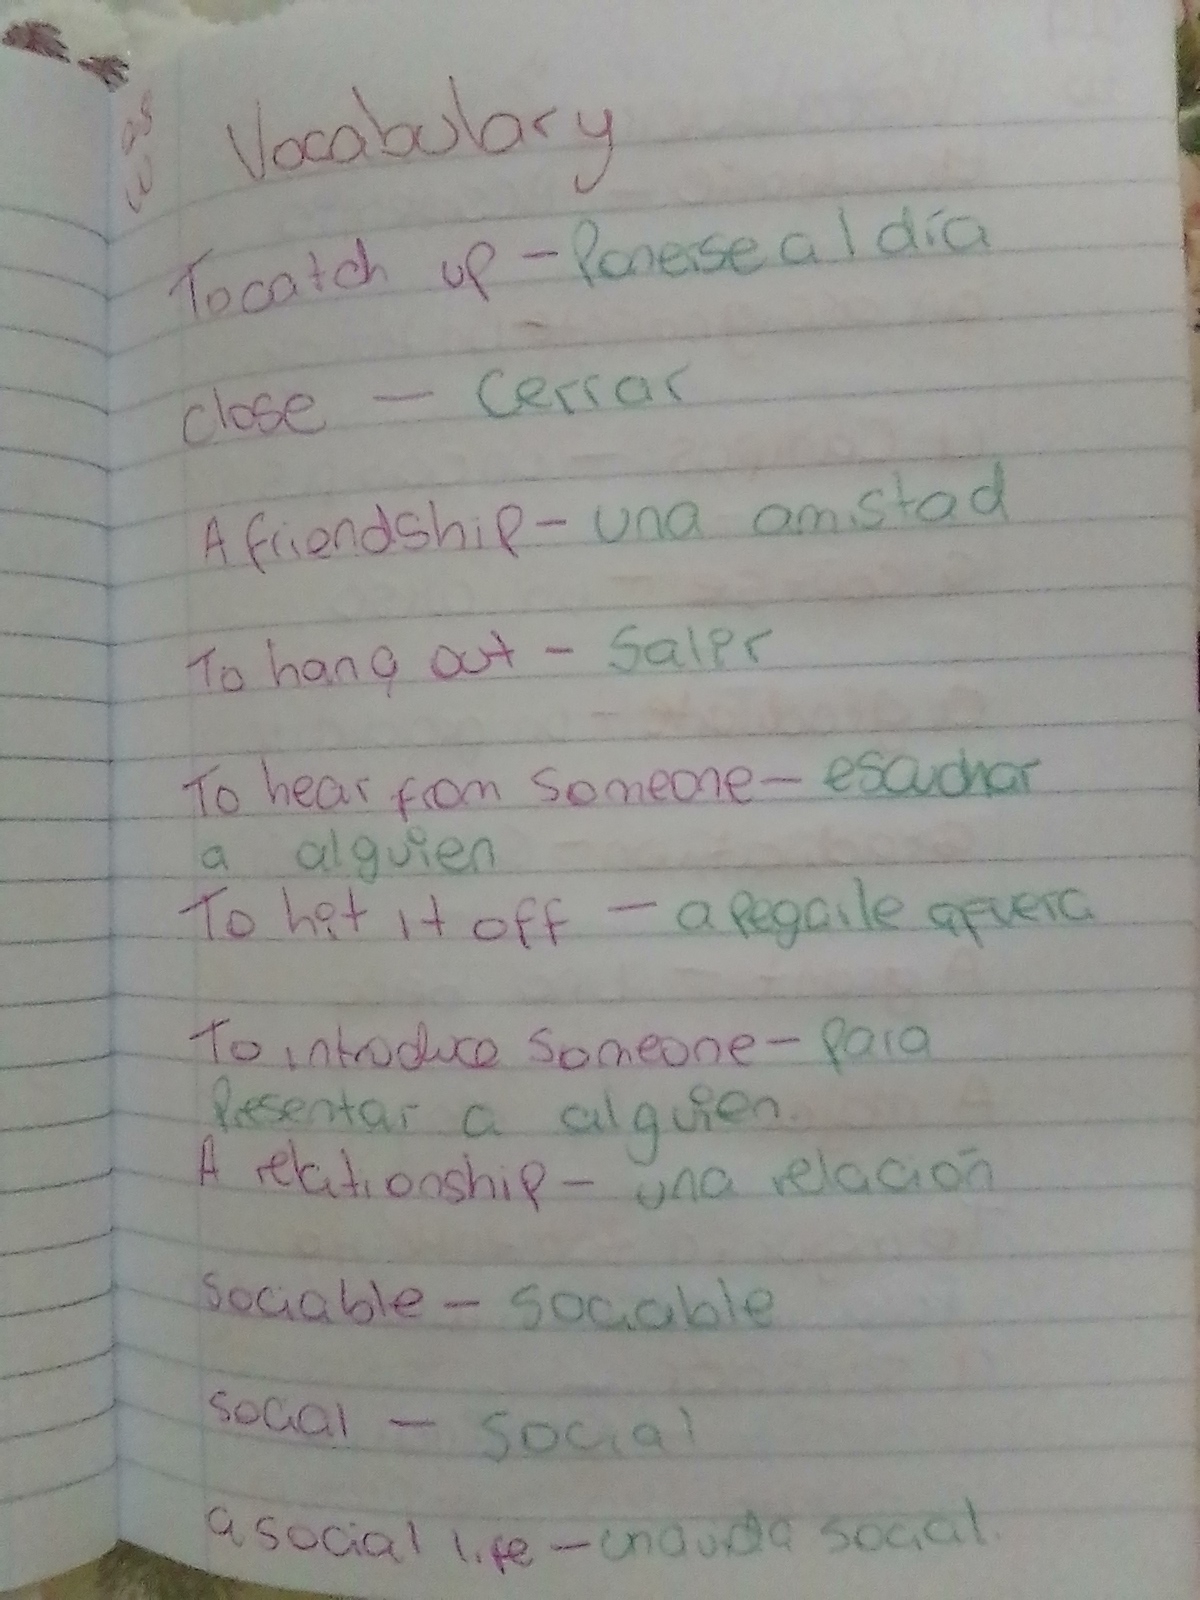 Vocabulary
To catch up - Ponerse al día
close - Cerrar
A friendship - una amistad
To hang out - Salir
To hear from someone - escuchar
a alguien
To hit it off - apegarle afuera
To introduce someone - Para
Presentar a alguien.
A relationship - una relación
sociable - sociable
social - social
a social life - una vida social.